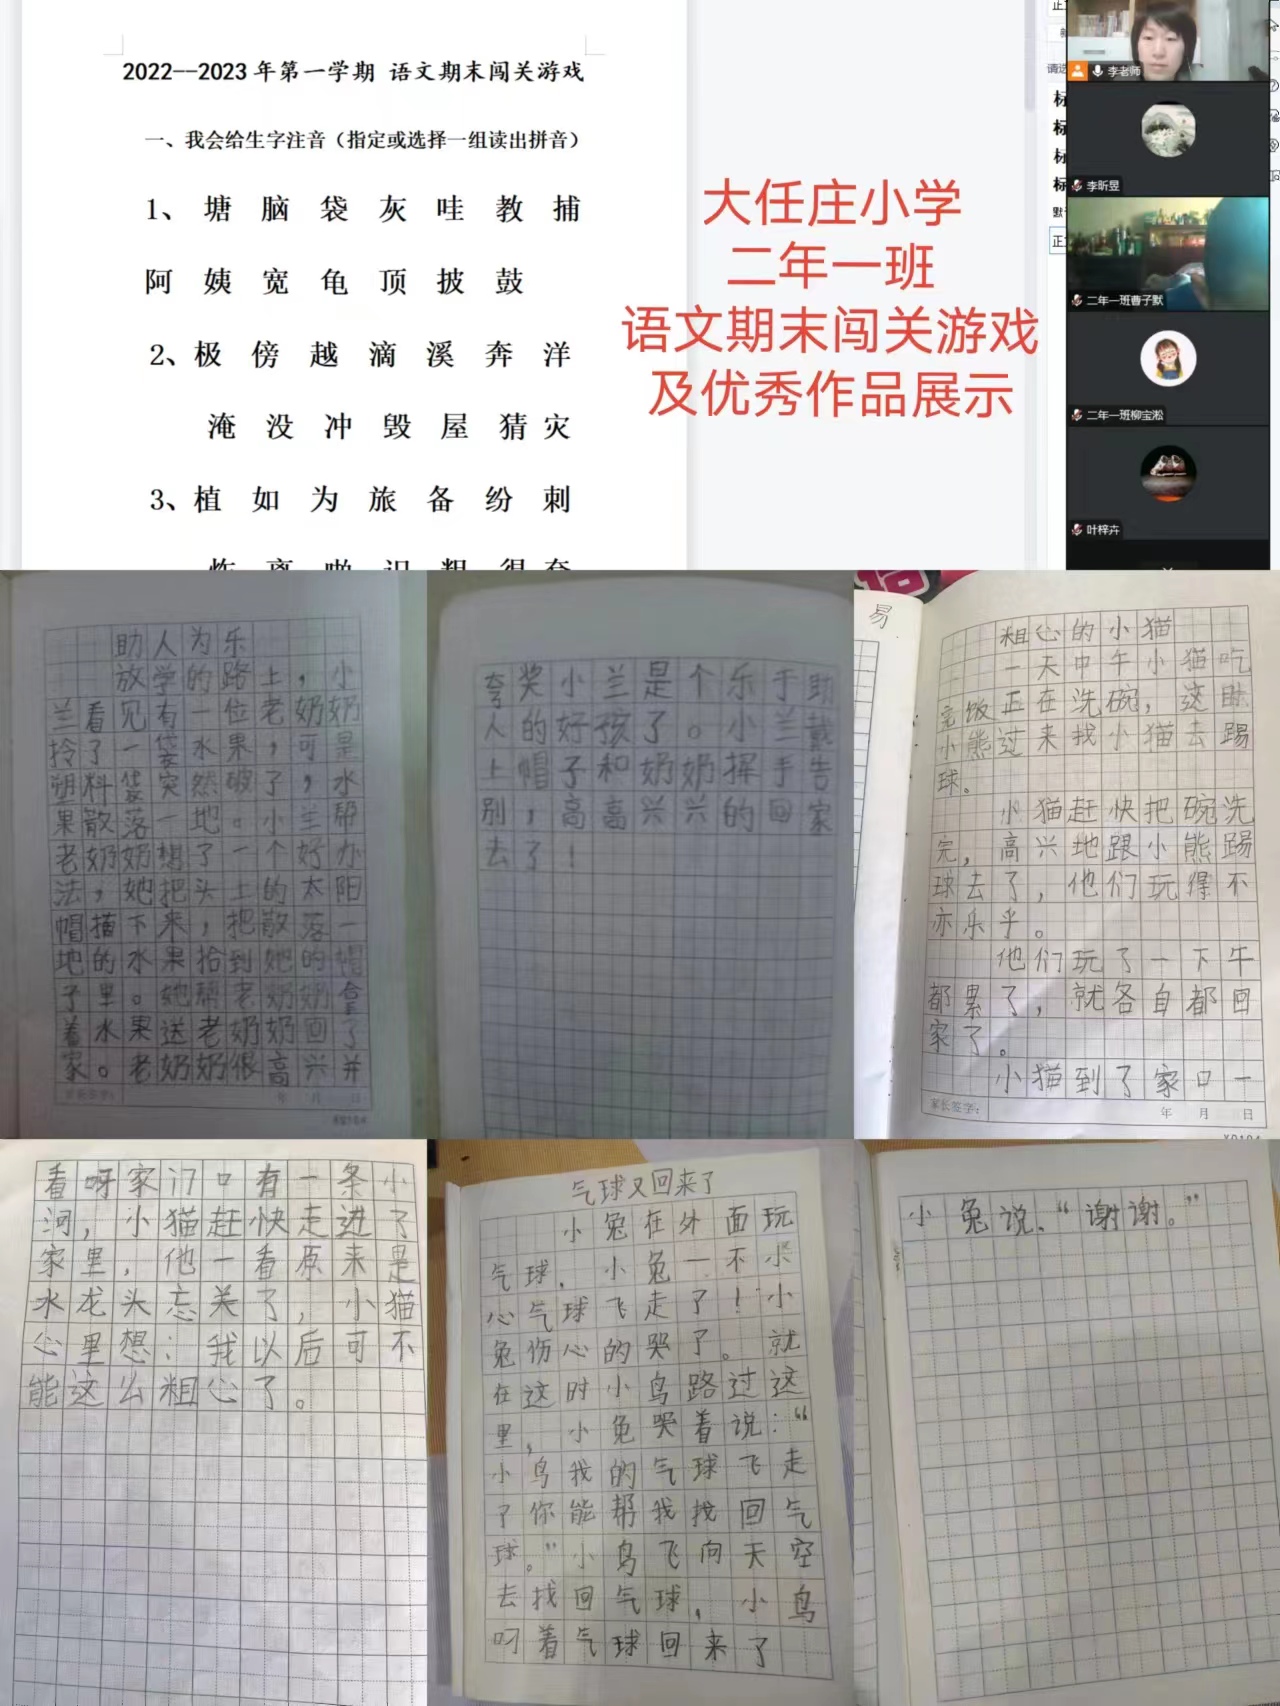 2022--2023年第一学期 语文期末闯关游戏
一、我会给生字注音（指定或选择一组读出拼音）
1、 塘 脑 袋 灰 哇 教 捕
阿 姨 宽 龟 顶 披 鼓
2、极 傍 越 滴 溪 奔 洋
淹 没 冲 毁 屋 猜 灾
3、植 如 为 旅 备 纷 刺
大任庄小学
二年一班
语文期末闯关游戏
及优秀作品展示
李老师
李昕昱
二年一班曹子默
二年一班柳宝淞
叶梓卉
助人为乐
放学的路上，小
兰看见有一位老奶奶
拎了一袋水果，可是
塑料袋突然破了，水
果散落一地。小兰帮
老奶奶想了一个好办
法，她把头上的太阳
帽摘下来，把散落一
地的水果拾到她的帽
子里。她帮老奶奶拿
着水果送老奶奶回了
家。老奶奶很高兴并
家长签字： 年 月 日
夸奖小兰是个乐于助
人的好孩了。小兰戴
上帽子和奶奶挥手告
别，高高兴兴的回家
去了！
易
粗心的小猫
一天中午小猫吃
完饭正在洗碗，这时
小熊过来找小猫去踢
球。
小猫赶快把碗洗
完，高兴地跟小熊踢
球去了，他们玩得不
亦乐乎。
他们玩了一下午
都累了，就各自都回
家了。
小猫到了家口一
家长签字： 年 月 日
看呀家门口有一条小
河，小猫赶快走进了
家里，他一看原来是
水龙头忘关了，小猫
心里想：我以后可不
能这么粗心了。
气球又回来了
小兔在外面玩
气球，小兔一不小
心气球飞走了！小
兔伤心的哭了。就
在这时小鸟路过这
里，小兔哭着说：“
小鸟我的气球飞走
了你能帮我找回气
球。”小鸟飞向天空
去找回气球，小鸟
叼着气球回来了
小兔说、“谢谢。”